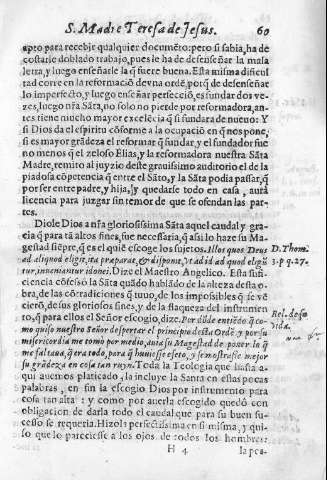 S. Madre Teresa de Jesus. 60
apto para recebir qualquier documẽto: pero si sabia, ha de
costarle doblado trabajo, pues le ha de desenseñar la mala
letra, y luego enseñarle la q̃ fuere buena. Esta misma dificul
tad corre en la reformaciõ de vna ordẽ, potq̃ de desenseñar
lo imperfecto, y luego enseñar perfecciõ, es fundar dos ve-
zes, luego nr̃a Sãta, no solo no pierde por reformadora, an-
tes tiene mucho mayor excelẽcia q̃ si fundara de nuevo: Y
si Dios da el espiritu cõforme a la ocupaciõ en q̃ nos pone,
si es mayor grãdeza el reformar q̃ fundar, y el fundador fue
no menos q̃ el zeloso Elias, y la reformadora nuestra Sãta
Madre, remito al juyzio deste grauissimo auditorio el de la
piadosa cõpetencia q̃ entre el Sãto, y la Sãta podia passar, q̃
por ser entre padre, y hija, y quedarse todo en casa, aurà
licencia para juzgar sin temor de que se ofendan las par-
tes.
Diole Dios a nr̃a gloriosissima Sãta aquel caudal y gra-
cia q̃ para tã altos fines, fue necessaria, q̃ assi lo haze su Ma-
gestad siẽpre, q̃ es el quiẽ escoge los sujetos. Illos quos Deus
ad aliquod eligit, ita præparat, & disponit, vt ad id ad quod eligũ
tur, inueniantur idonei. Dize el Maestro Angelico. Esta sufi-
D. Thom.
3. p q. 27.
ciencia cõfessò la Sãta quãdo hablãdo de la alteza desta o-
bra, de las cõtradiciones q̃ tuuo, de los impossibles q̃ se vẽ
cierõ, de sus gloriosos fines, y de la flaqueza del instrumẽ
to, q̃ para ellos el Señor escogio, dize. Por dõde entiẽdo q̃ co-
mo quiso nuestro Señor despertar el principio desta Ordẽ, y por su
misericordia me tomò por medio, auia su Magestad de poner lo q̃
me faltaua, q̃ era todo, para q̃ huuiesse efeto, y se mostrasse mejor
su grãdeza en cosa tan ruyn. Toda la Teologia que hasta a-
Rel. de su
vida.
qui auemos platicado, la incluye la Santa en estas pocas
palabras, en fin la escogio Dios por instrumento para
cosa tan alta: y como por auerla escogido quedò con
obligacion de darla todo el caudal que para su buen suc-
cesso se requeria. Hizola perfectissima en si misma, y qui-
so que lo pareciesse a los ojos de todos los hombres:
H 4 la pea-